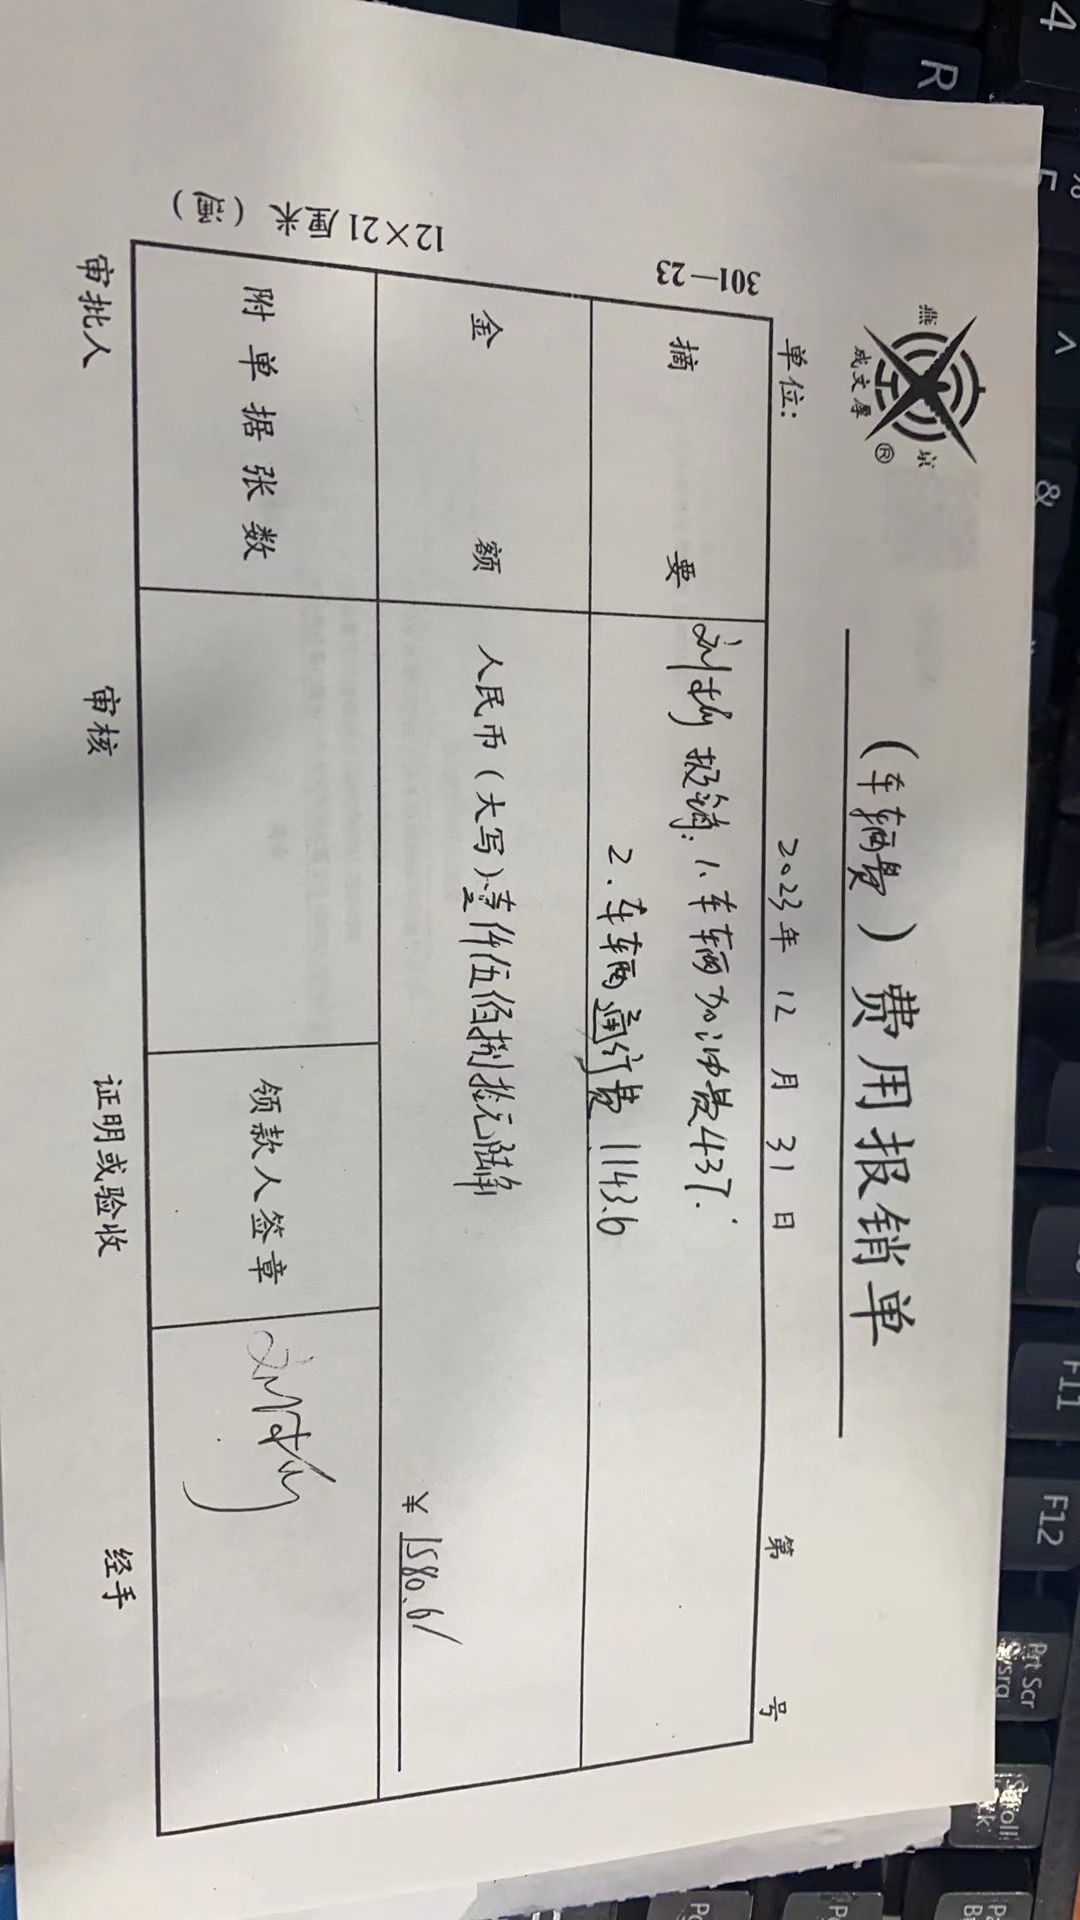 燕 京
成文厚
®
(车辆费)费用报销单
单位: 2023年 12 月 31 日 第 号
301—23
摘 要
刘 报销: 1、车辆加油费437.
2.车辆通行费 1143.6
金 额
人民币(大写):壹仟伍佰捌拾元陆角
¥ 1580.6/
附单据张数
领款人签章
12×21厘米(通)
审批人 审核 证明或验收 经手
4
R
F
%
^
&
F11
F12
Prt Scr
Scroll